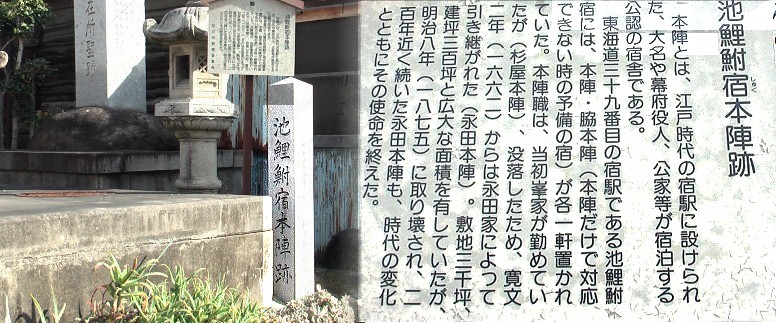 明治天皇聖蹟
池鯉鮒宿本陣跡
池鯉鮒宿本陣跡
しゅく
本陣とは、江戸時代の宿駅に設けられ
た、大名や幕府役人、公家等が宿泊する
公認の宿舎である。
東海道三十九番目の宿駅である池鯉鮒
宿には、本陣・脇本陣（本陣だけで対応
できない時の予備の宿）が各一軒置かれ
ていた。本陣職は、当初峯家が勤めてい
たが（杉屋本陣）、没落したため、寛文
二年（一六六二）からは永田家によって
引き継がれた（永田本陣）。敷地三千坪、
建坪三百坪と広大な面積を有していたが、
明治八年（一八七五）に取り壊され、二
百年近く続いた永田本陣も、時代の変化
とともにその使命を終えた。